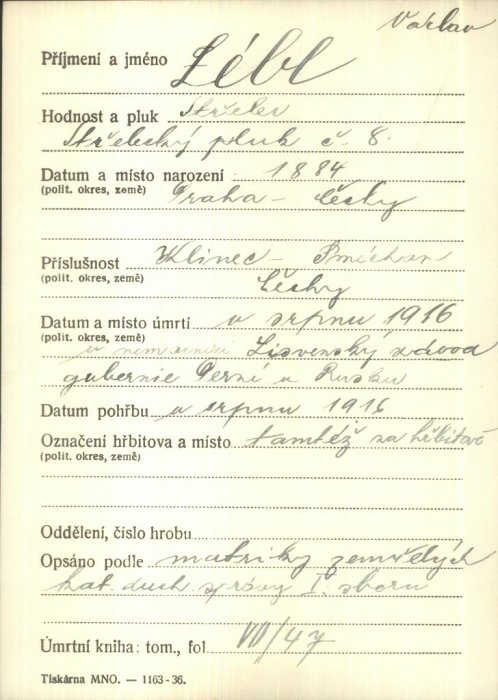 Václav
Příjmení a jméno Lébl
Hodnost a pluk Střelec
Střelecký pluk č. 8.
Datum a místo narození: 1884
(polit. okres, země) Praha - Čechy
Příslušnost Klinec - Smíchov
(polit. okres, země) Čechy
Datum a místo úmrtí v srpnu 1916
(polit. okres, země) v Lisvenský závod
gubernie Perné v Rusku
Datum pohřbu v srpnu 1916
Označení hřbitova a místo tamtéž na hřbitově
(polit. okres, země)
Oddělení, číslo hrobu
Opsáno podle matriky zemřelých
kat. duch. správy I. sboru
Úmrtní kniha: tom., fol VII/47
Tiskárna MNO. — 1163-36.